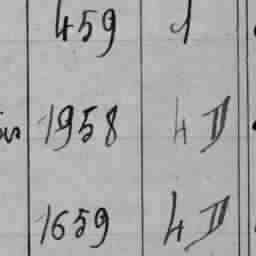 459 1
1958 4 II
1659 4 II